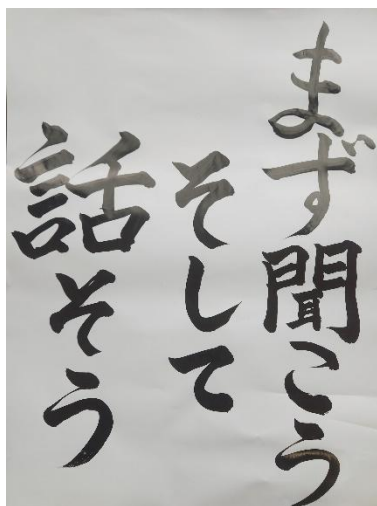 まず聞こう
そして
話そう